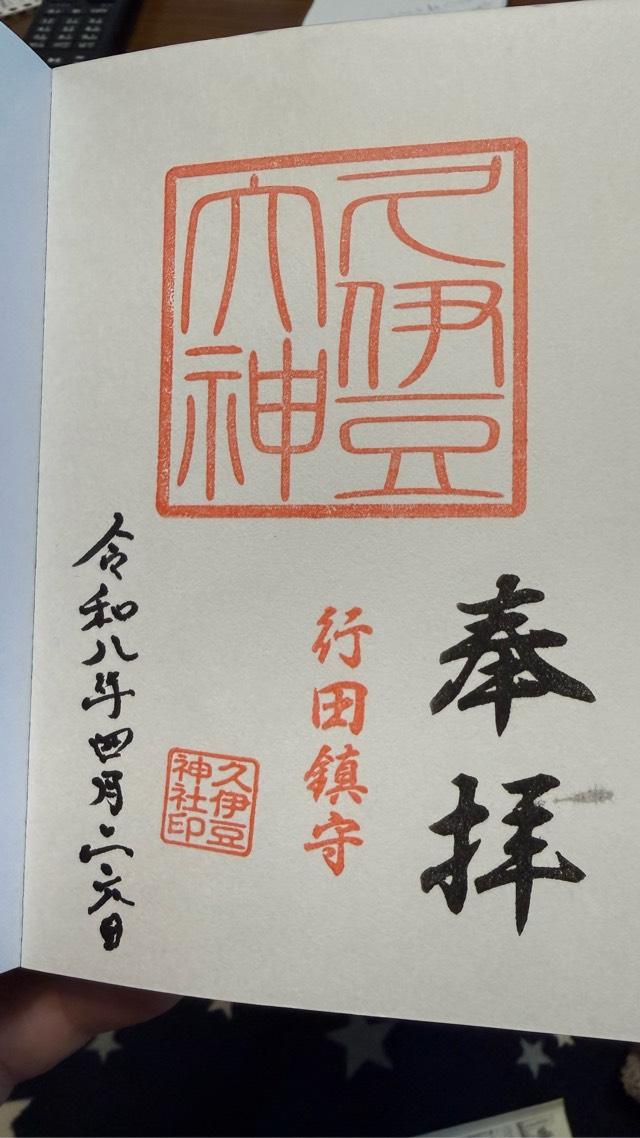 久伊豆
大神
奉拝
行田鎮守
久伊豆
神社印
令和八年四月二六日